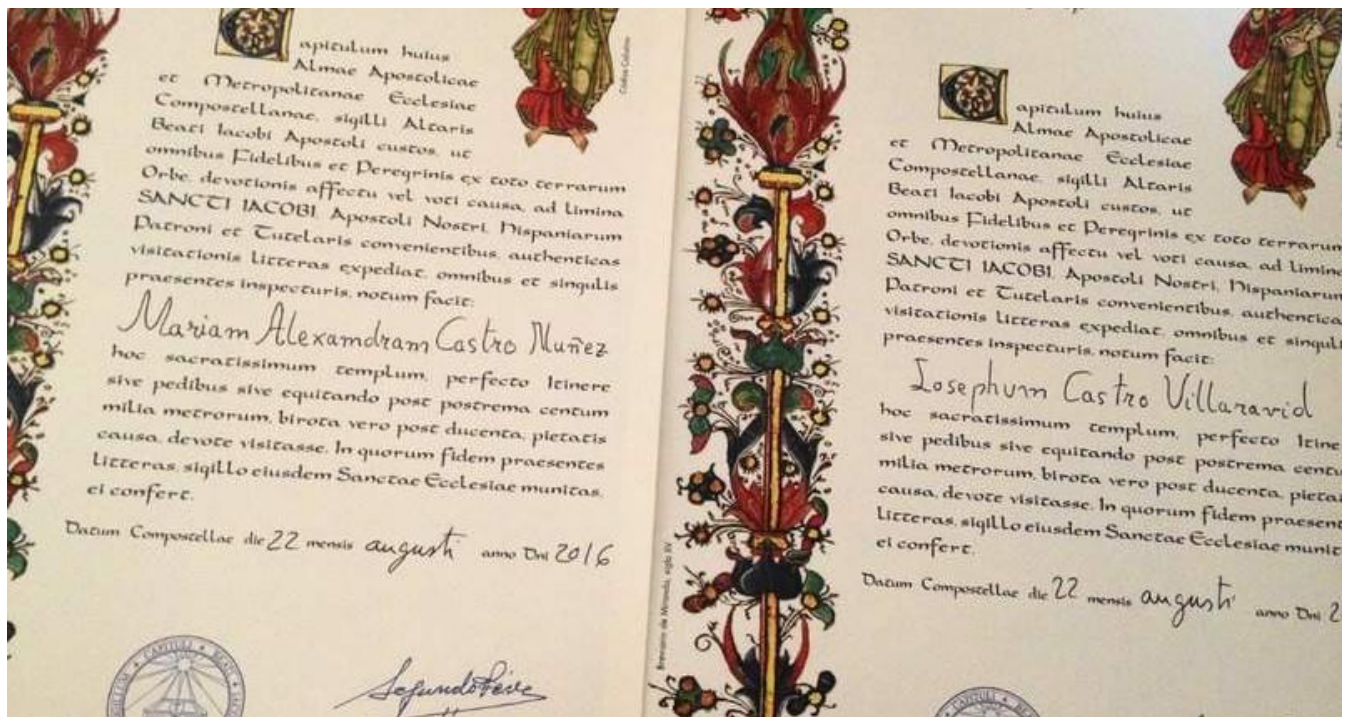 Capitulum huius
Almae Apostolicae
et Metropolitanae Ecclesiae
Compostellanae, sigilli Altaris
Beati Iacobi Apostoli custos, ut
omnibus Fidelibus et Peregrinis ex toto terrarum
Orbe, devotionis affectu vel voti causa, ad limina
SANCTI IACOBI, Apostoli Nostri, Hispaniarum
Patroni et Tutelaris convenientibus, authenticas
visitationis litteras expediat, omnibus et singulis
praesentes inspecturis, notum facit:
Mariam Alexamdram Castro Nuñez
hoc sacratissimum templum, perfecto Itinere
sive pedibus sive equitando post postrema centum
milia metrorum, birota vero post ducenta, pietatis
causa, devote visitasse. In quorum fidem praesentes
litteras, sigillo eiusdem Sanctae Ecclesiae munitas,
ei confert.
Datum Compostellae die 22 mensis augusti anno Dni 2016
CAPITULI
Segundo
Codex Calixtinus
Breviario de Miranda, siglo XV
Capitulum huius
Almae Apostolicae
et Metropolitanae Ecclesiae
Compostellanae, sigilli Altaris
Beati Iacobi Apostoli custos, ut
omnibus Fidelibus et Peregrinis ex toto terrarum
Orbe, devotionis affectu vel voti causa, ad limina
SANCTI IACOBI, Apostoli Nostri, Hispaniarum
Patroni et Tutelaris convenientibus, authentica
visitationis litteras expediat, omnibus et singuli
praesentes inspecturis, notum facit:
Iosephum Castro Villaravid
hoc sacratissimum templum, perfecto Itine
sive pedibus sive equitando post postrema centu
milia metrorum, birota vero post ducenta, pieta
causa, devote visitasse. In quorum fidem praesent
litteras, sigillo eiusdem Sanctae Ecclesiae munit
ei confert.
Datum Compostellae die 22 mensis augusti anno Dni 2
CAPITULI